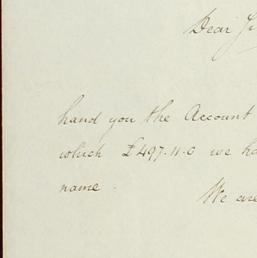 Dear
hand you the Account
which £497.11.0 we
name.
We are